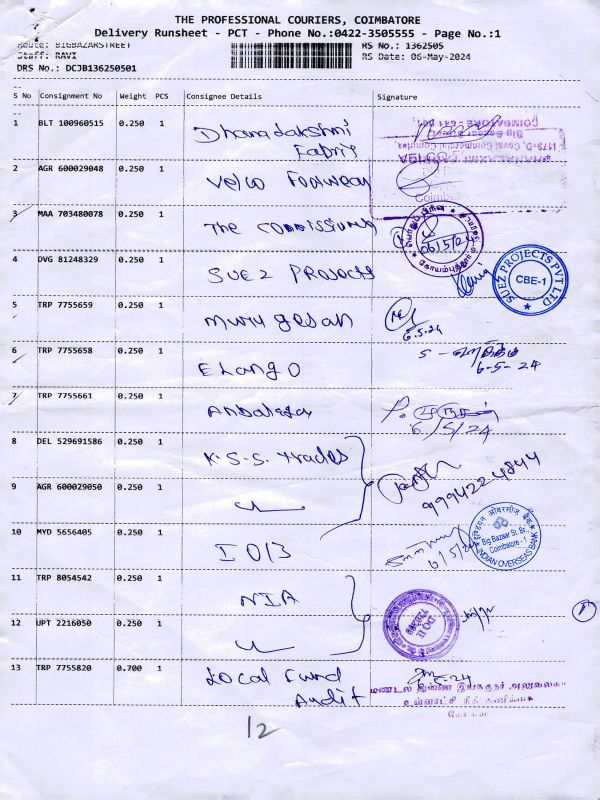 THE PROFESSIONAL COURIERS, COIMBATORE
Delivery Runsheet - PCT - Phone No.:0422-3505555 - Page No.:1
Route: BIGBAZARSTREET
RS No.: 1362505
Staff: RAVI
RS Date: 06-May-2024
DRS No.: DCJB136250501
S No Consignment No Weight PCS Consignee Details Signature
1 BLT 100960515 0.250 1 Dhanalakshmi
Fabric
Big Bazaar Street,
COIMBATORE - 641 001
2 AGR 600029048 0.250 1 Velco Footwear
3 MAA 703480078 0.250 1 The Commissioner
06/5/24
4 DVG 81248329 0.250 1 SUEZ PROJECTS
SUEZ PROJECTS PVT LTD
CBE-1
5 TRP 7755659 0.250 1 Murugesan
6.5.24
6 TRP 7755658 0.250 1 Elango
6-5-24
7 TRP 7755661 0.250 1
6/5/24
8 DEL 529691586 0.250 1 K.S.S. Trades
9994224844
9 AGR 600029050 0.250 1
10 MYD 5656405 0.250 1 IOB
6/5/24
इण्डियन ओवरसीज़ बैंक
Big Bazaar St. Br.,
Coimbatore - 1
INDIAN OVERSEAS BANK
11 TRP 8054542 0.250 1 NIA
12 UPT 2216050 0.250 1
13 TRP 7755820 0.700 1 Local Fund
Audit
மண்டல இணை இயக்குநர் அலுவலகம்
உள்ளாட்சி நிதி தணிக்கை
12